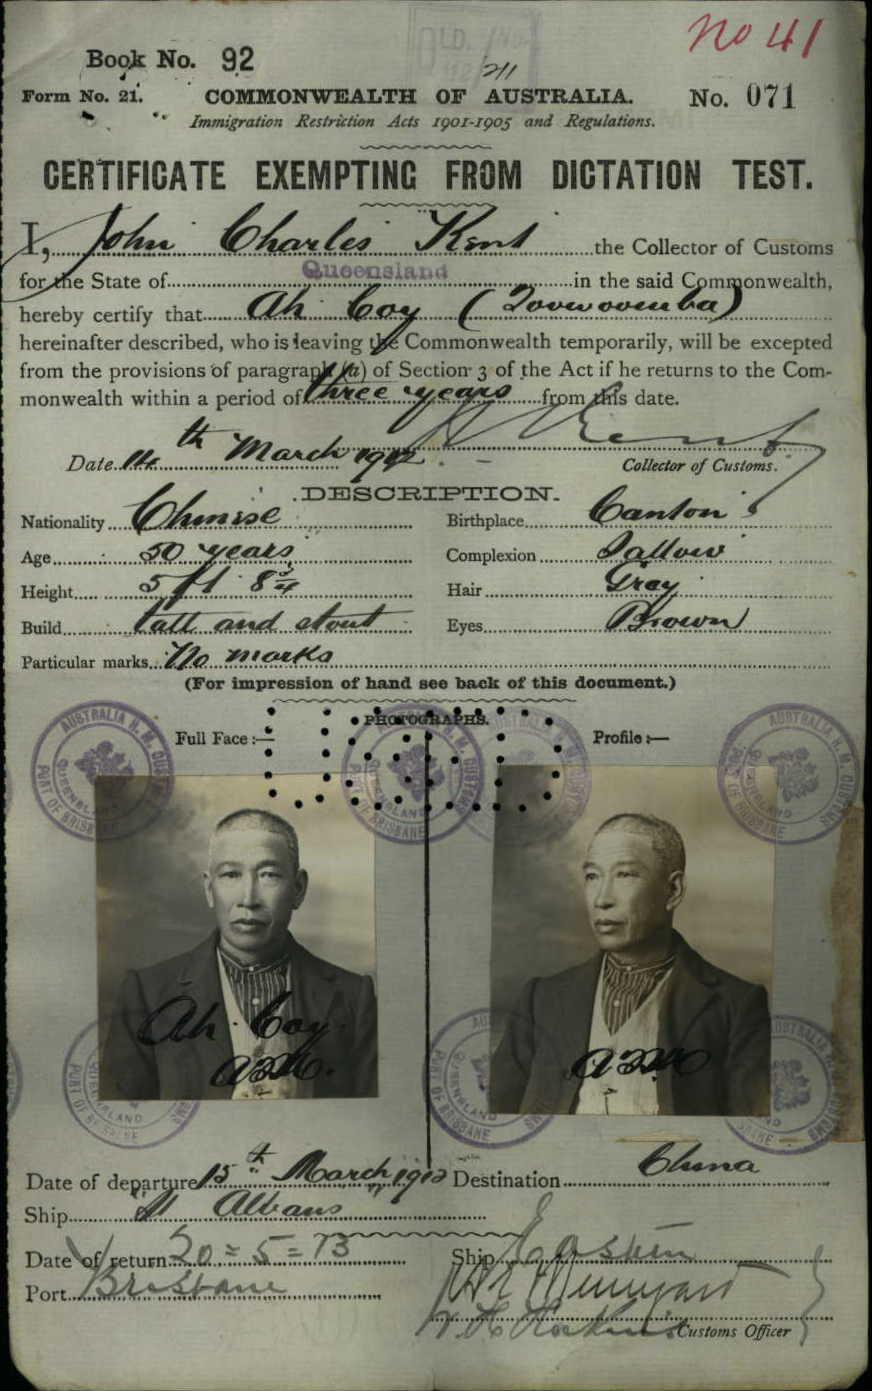 No 41
Book No. 92
211
Form No. 21. COMMONWEALTH OF AUSTRALIA. No. 071
Immigration Restriction Acts 1901-1905 and Regulations.
CERTIFICATE EXEMPTING FROM DICTATION TEST.
I, John Charles Kent the Collector of Customs
for the State of Queensland in the said Commonwealth,
hereby certify that Ah Coy (Toowoomba)
hereinafter described, who is leaving the Commonwealth temporarily, will be excepted
from the provisions of paragraph (a) of Section 3 of the Act if he returns to the Com-
monwealth within a period of three years from this date.
Date 14th March 1912 Kent
Collector of Customs.
DESCRIPTION.
Nationality Chinese Birthplace Canton
Age 50 years Complexion Sallow
Height 5 ft 8¾ Hair Grey
Build tall and stout Eyes Brown
Particular marks No marks
(For impression of hand see back of this document.)
PHOTOGRAPHS.
Full Face :— Profile :—
AUSTRALIA H. M. CUSTOMS PORT OF BRISBANE QUEENSLAND
Ah Coy
Date of departure 15th March 1912 Destination China
Ship St Albans
Date of return 20=5=13 Ship Eastern
Port Brisbane
Customs Officer